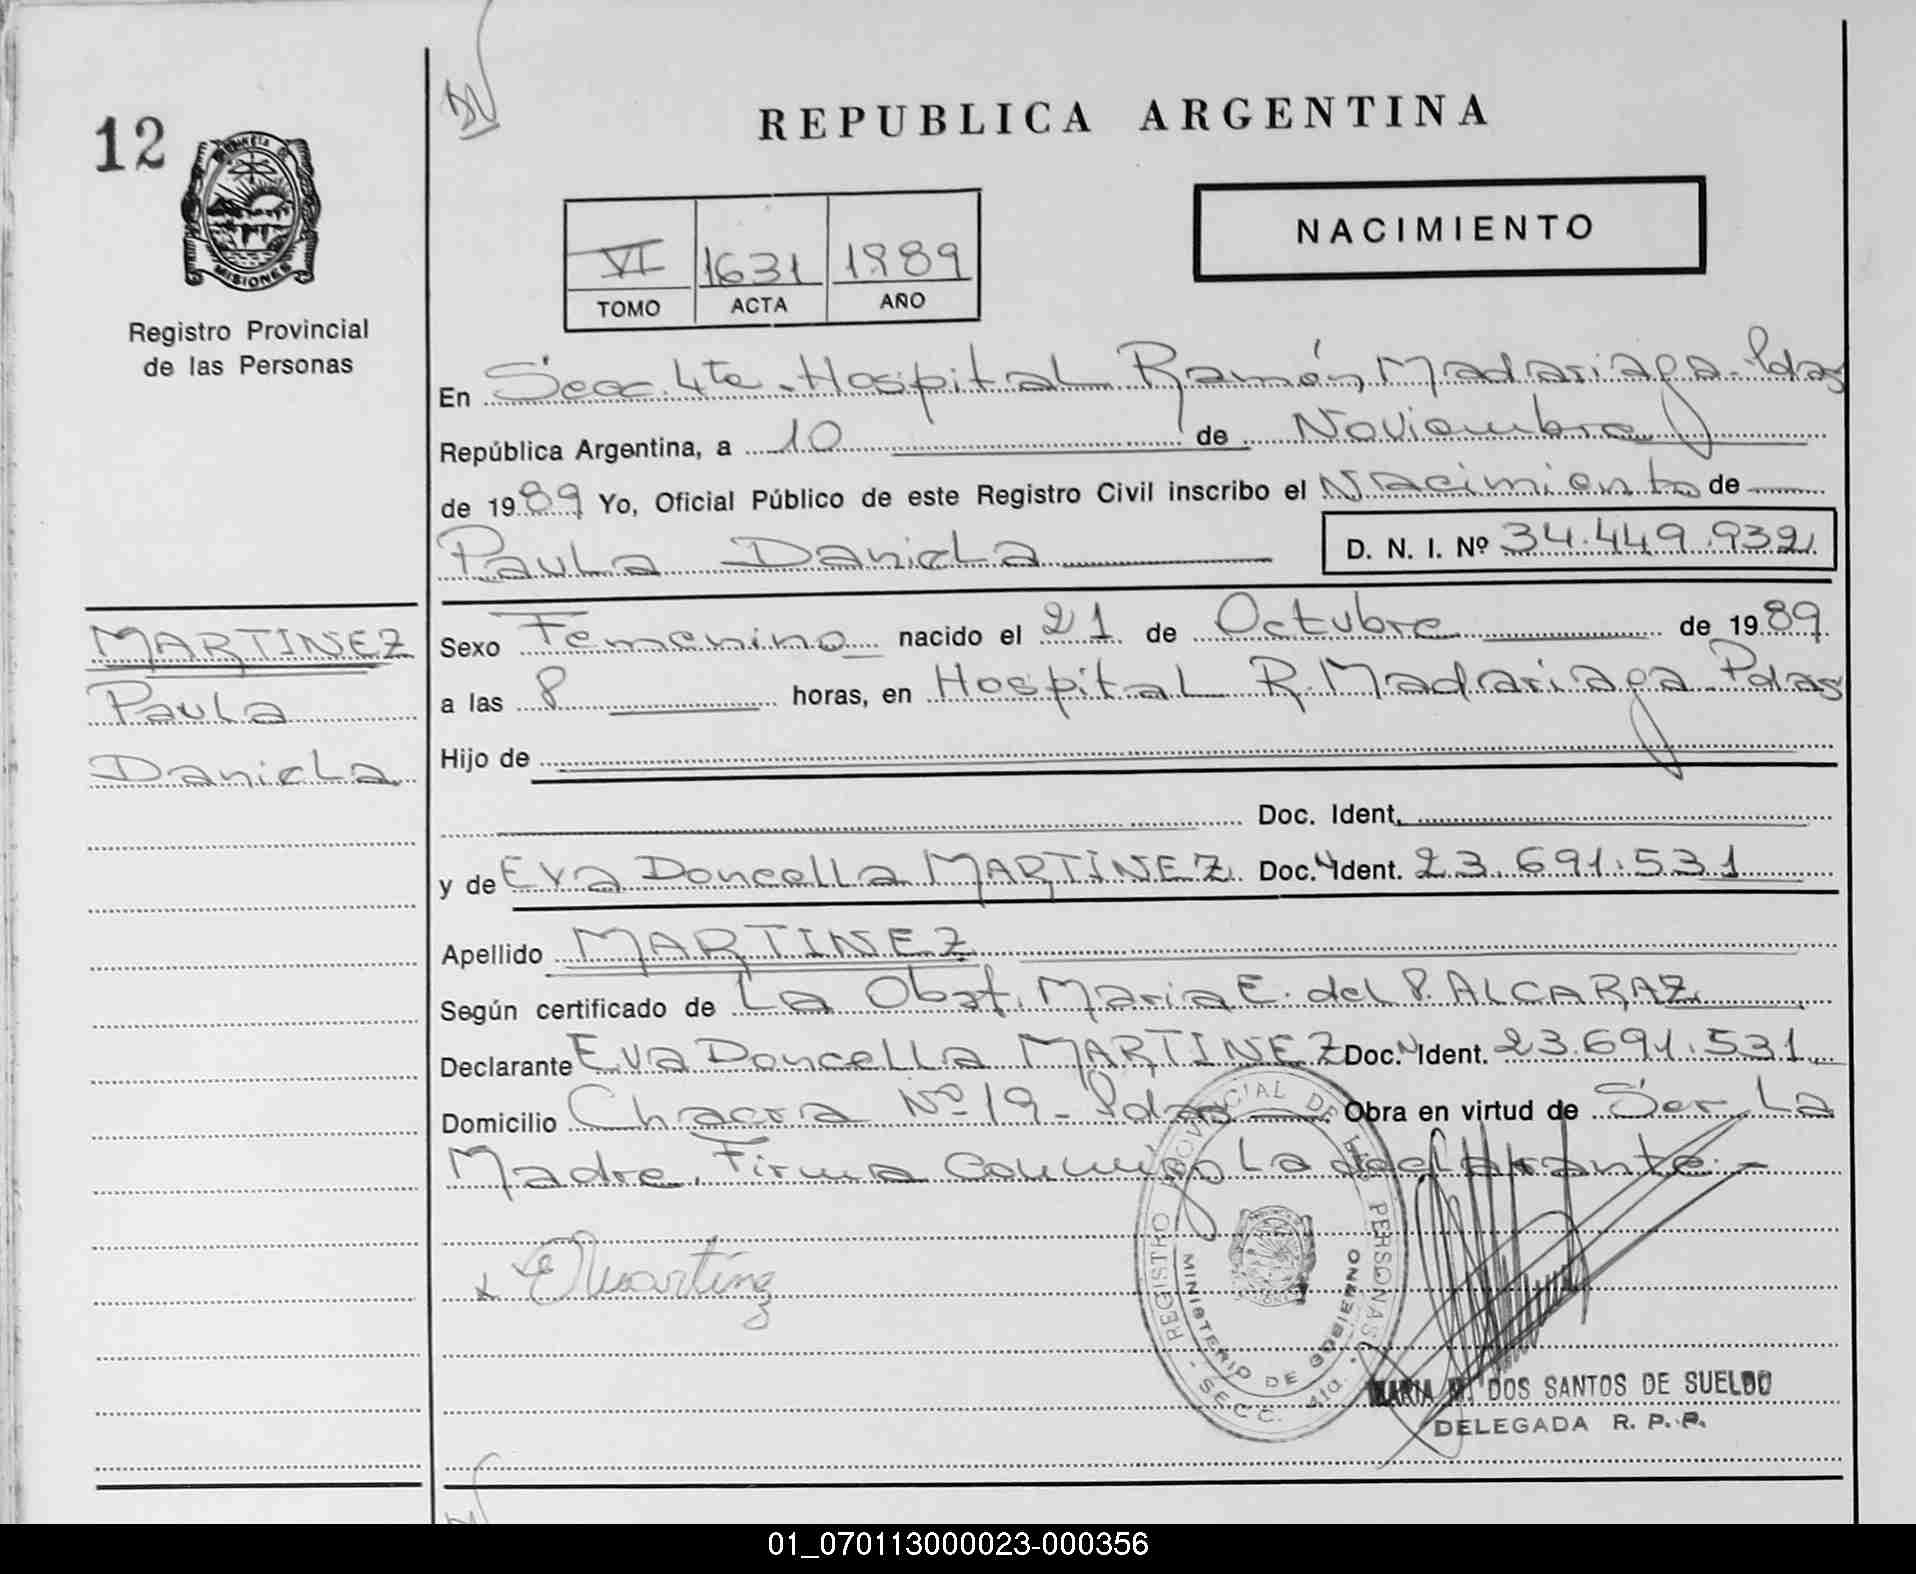 12
REPUBLICA ARGENTINA
NACIMIENTO
VI 1631 1989
TOMO ACTA AÑO
PROVINCIA DE MISIONES
Registro Provincial
de las Personas
En Secc. 4ta. Hospital Ramón Madariaga - Pdas
República Argentina, a 10 de Noviembre
de 1989 Yo, Oficial Público de este Registro Civil inscribo el Nacimiento de
Paula Daniela D. N. I. Nº 34.449.932
MARTINEZ
Paula
Daniela
Sexo Femenino nacido el 21 de Octubre de 1989
a las 8 horas, en Hospital R. Madariaga - Pdas
Hijo de
Doc. Ident.
y de Eva Doncella MARTINEZ Doc. Ident. 23.691.531
Apellido MARTINEZ
Según certificado de La Obst. Maria E. del P. ALCARAZ
Declarante Eva Doncella MARTINEZ Doc. Ident. 23.691.531
Domicilio Chacra Nº 19 - Pdas Obra en virtud de Ser La
Madre. Firma Conmigo La declarante.-
EMartinez
REGISTRO PROVINCIAL DE LAS PERSONAS
MINISTERIO DE GOBIERNO
- SECC. 4ta. -
MARIA M. DOS SANTOS DE SUELDO
DELEGADA R. P. P.
01_070113000023-000356